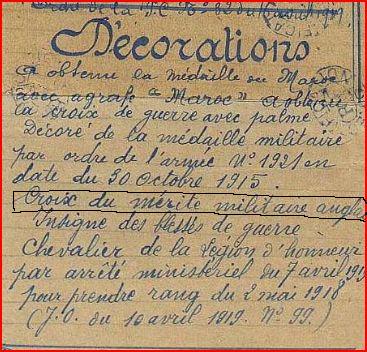 Ordre de la
Décorations
a obtenu la médaille du Maroc
avec agrafe "Maroc" a obtenu
la croix de guerre avec palme
Décoré de la médaille militaire
par ordre de l'armée N° 1921 en
date du 30 Octobre 1915.
Croix du mérite militaire angla
Insigne des blessés de guerre
Chevalier de la Légion d'honneur
par arrêté ministeriel du 7 avril 1919
pour prendre rang du 2 mai 1918
(J.O. du 10 avril 1919. N° 99.)